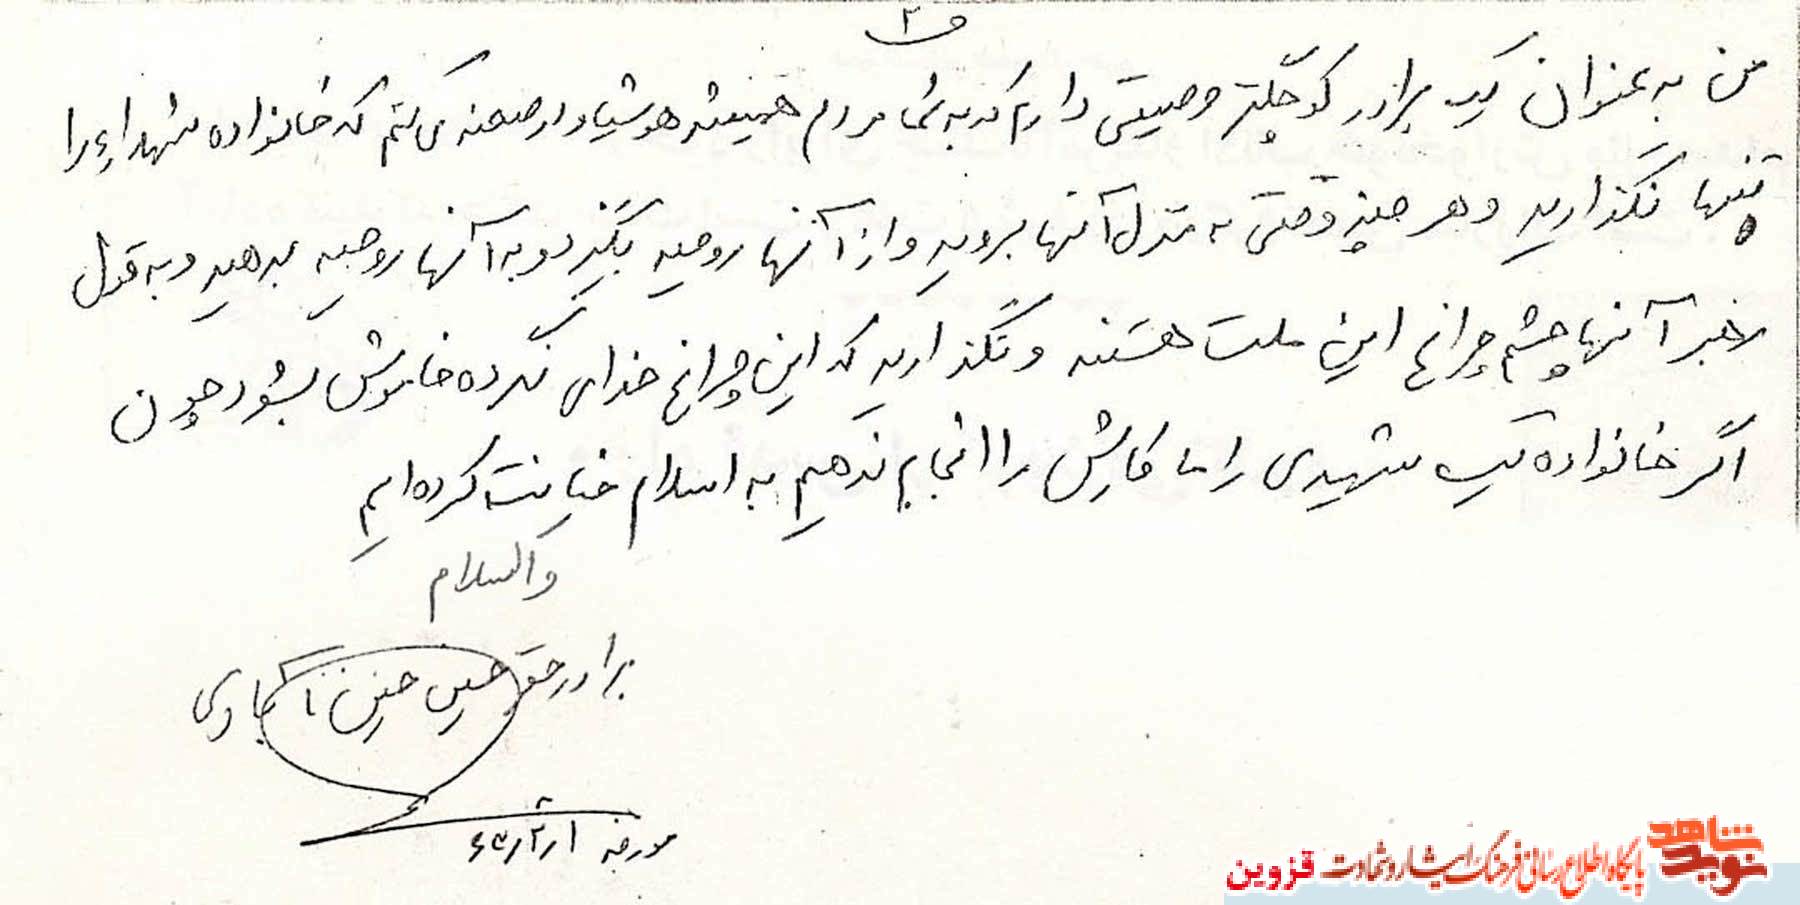 ۲
من به عنوان یک برادر کوچکتر وصیتی دارم که به شما مردم همیشه هوشیار در صحنه می کنم که خانواده شهداء را
تنها نگذارید و هر چند وقتی به منزل آنها بروید و از آنها روحیه بگیرید و به آنها روحیه بدهید و به قول
رهبر آنها چشم چراغ این ملت هستند و نگذارید که این چراغ خدای نکرده خاموش بشود چون
اگر خانواده یک شهیدی را ما کارش را انجام ندهیم به اسلام خیانت کرده ایم
والسلام
برادر حقیر حسین
مورخه
نوید شاهد پایگاه اطلاع رسانی فرهنگ ایثار و شهادت قزوین